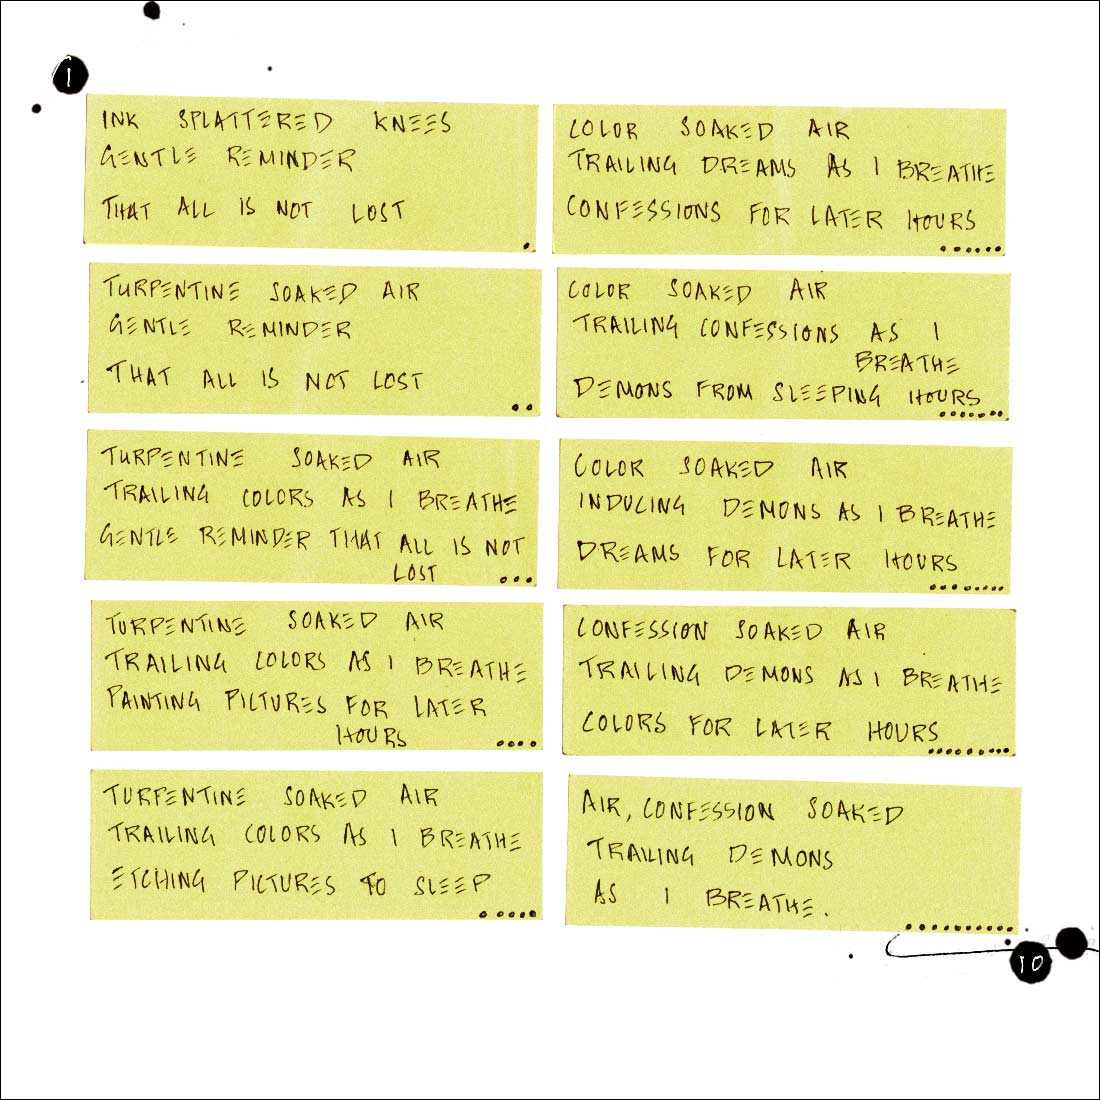 1
INK SPLATTERED KNEES
GENTLE REMINDER
THAT ALL IS NOT LOST
TURPENTINE SOAKED AIR
GENTLE REMINDER
THAT ALL IS NOT LOST
TURPENTINE SOAKED AIR
TRAILING COLORS AS I BREATHE
GENTLE REMINDER THAT ALL IS NOT
LOST
TURPENTINE SOAKED AIR
TRAILING COLORS AS I BREATHE
PAINTING PICTURES FOR LATER
HOURS
TURPENTINE SOAKED AIR
TRAILING COLORS AS I BREATHE
ETCHING PICTURES TO SLEEP
COLOR SOAKED AIR
TRAILING DREAMS AS I BREATHE
CONFESSIONS FOR LATER HOURS
COLOR SOAKED AIR
TRAILING CONFESSIONS AS I
BREATHE
DEMONS FROM SLEEPING HOURS
COLOR SOAKED AIR
INDUCING DEMONS AS I BREATHE
DREAMS FOR LATER HOURS
CONFESSION SOAKED AIR
TRAILING DEMONS AS I BREATHE
COLORS FOR LATER HOURS
AIR, CONFESSION SOAKED
TRAILING DEMONS
AS I BREATHE.
10